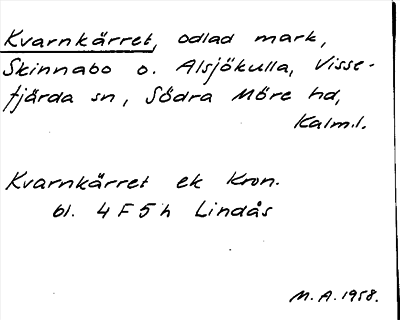 Kvarnkärret, odlad mark,
Skinnabo o. Alsjökulla, Visse-
fjärda sn, Södra Möre hd,
Kalm.l.
Kvarnkärret ek Kron.
bl. 4 F 5 h Lindås
M.A. 1958.